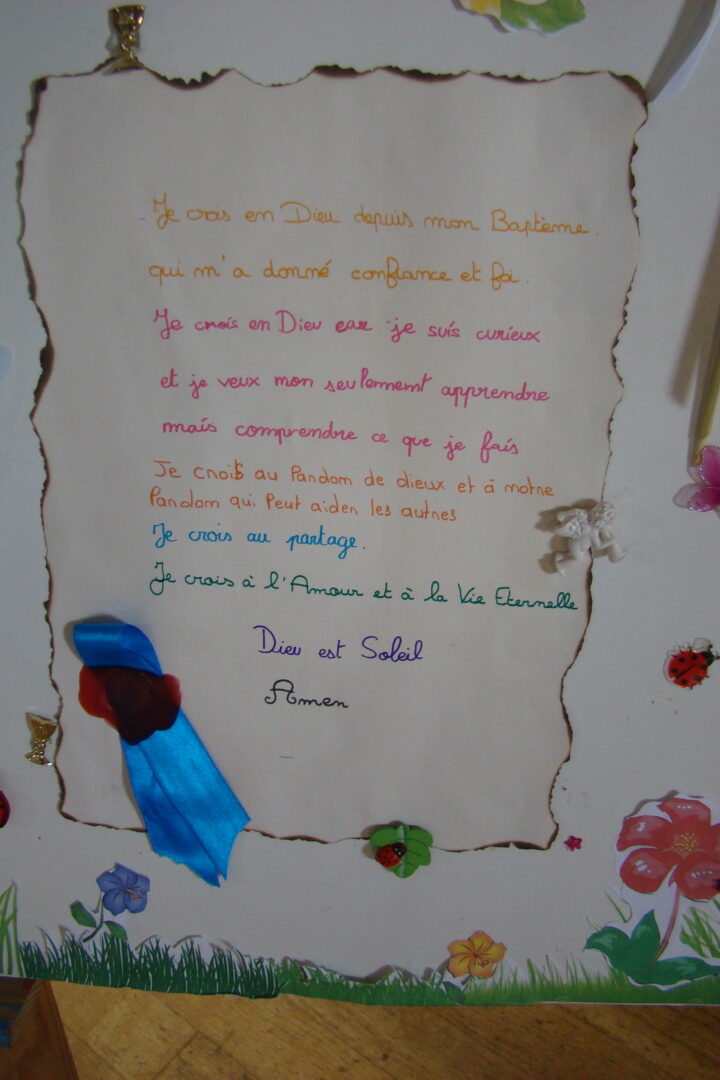 Je crois en Dieu depuis mon Baptème.
qui m'a donné confiance et foi.
Je crois en Dieu car je suis curieux
et je veux mon seulement apprendre
mais comprendre ce que je fais
Je crois au Pandom de dieux et à motre
Pandom qui Peut aider les autres
Je crois au partage.
Je crois à l'Amour et à la Vie Eternelle
Dieu est Soleil
Amen